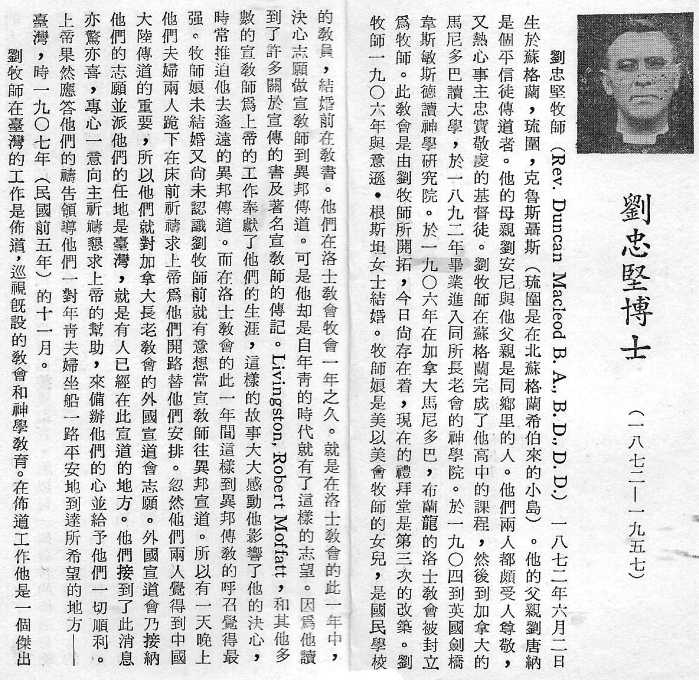 劉忠堅博士
(一八七二—一九五七)
劉忠堅牧師 (Rev. Duncan Macleod B. A., B. D., D. D.) 一八七二年六月二日
生於蘇格蘭，琉圍，克魯斯聶斯（琉圍是在北蘇格蘭希伯來的小島）。他的父親劉唐納
是個平信徒傳道者。他的母親劉安尼與他父親是同鄉里的人。他們兩人都頗受人尊敬，
又熱心事主忠實敬虔的基督徒。劉牧師在蘇格蘭完成了他高中的課程，然後到加拿大的
馬尼多巴讀大學，於一八九二年畢業進入同所長老會的神學院。於一九〇四到英國劍橋
韋斯敏斯德讀神學研究院。於一九〇六年在加拿大馬尼多巴，布蘭龍的洛士敎會被封立
爲牧師。此敎會是由劉牧師所開拓，今日尙存在着，現在的禮拜堂是第三次的改築。劉
牧師一九〇六年與意遜·根斯坦女士結婚。牧師娘是美以美會牧師的女兒，是國民學校
的敎員，結婚前在敎書。他們在洛士敎會牧會一年之久。就是在洛士敎會的此一年中，
決心志願做宣敎師到異邦傳道。可是他却是自年靑的時代就有了這樣的志望。因爲他讀
到了許多關於宣傳的書及著名宣敎師的傳記。Livingston, Robert Moffatt，和其他多
數的宣敎師爲上帝的工作奉獻了他們的生涯，這樣的故事大大感動他影響了他的決心，
時常推迫他去遙遠的異邦傳道。而在洛士敎會的此一年間這樣到異邦傳敎的呼召覺得最
强。牧師娘未結婚又尙未認識劉牧師前就有意想當宣敎師往異邦宣道。所以有一天晚上
他們夫婦兩人跪下在床前祈禱求上帝爲他們開路替他們安排。忽然他們兩人覺得到中國
大陸傳道的重要，所以他們就對加拿大長老敎會的外國宣道會志願。外國宣道會乃接納
他們的志願並派他們的任地是臺灣，就是有人已經在此宣道的地方。他們接到了此消息
亦驚亦喜，專心一意向主祈禱懇求上帝的幫助，來備辦他們的心並給予他們一切順利。
上帝果然應答他們的禱告領導他們一對年靑夫婦坐船一路平安地到達所希望的地方——
臺灣，時一九〇七年（民國前五年）的十一月。
劉牧師在臺灣的工作是佈道，巡視旣設的敎會和神學敎育。在佈道工作他是一個傑出